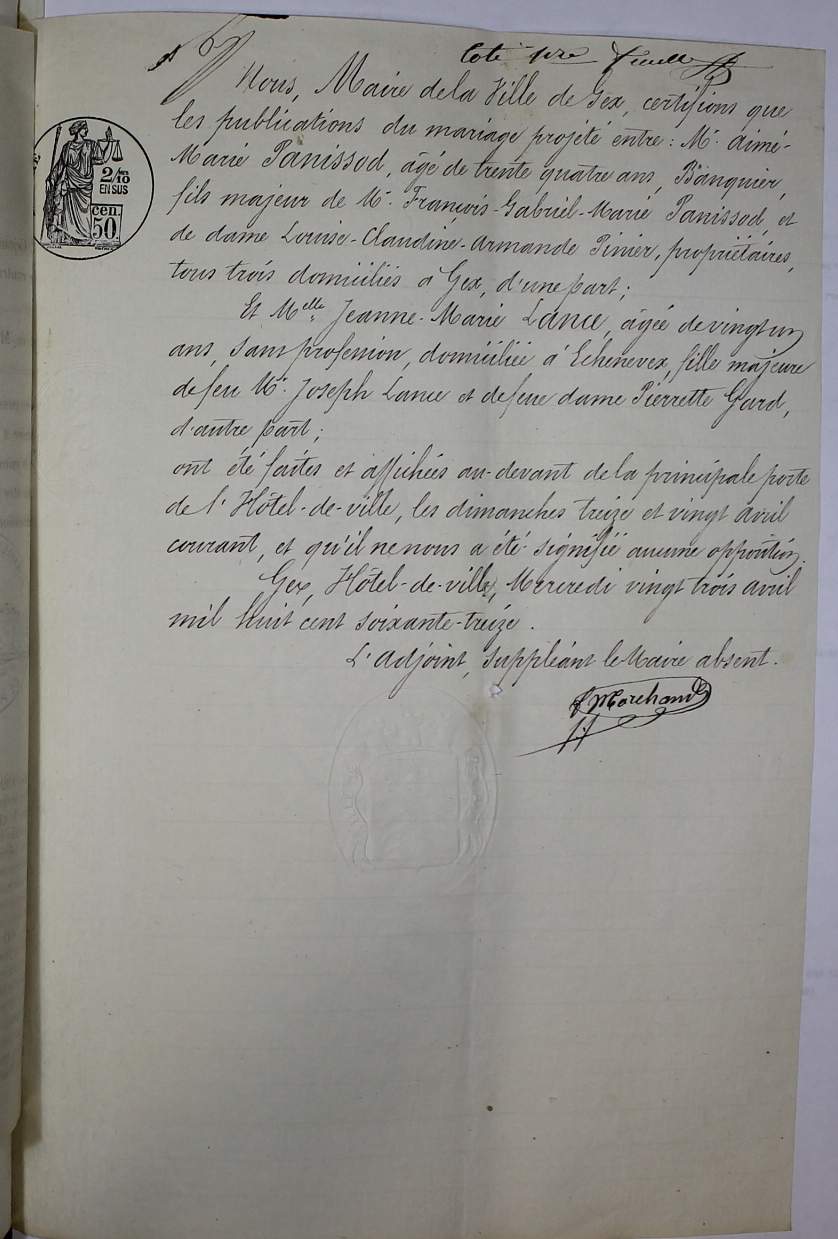 Coté 1re
Nous, Maire de la Ville de Gex, certifions que
les publications du mariage projeté entre: Mr. Aimé-
Marie Panissod, âgé de trente quatre ans, Banquier,
fils majeur de Mr. François-Gabriel-Marie Panissod, et
de dame Louise-Claudine-Armande Pinier, propriétaires,
tous trois domiciliés à Gex, d'une part;
Et Melle Jeanne-Marie Lance, âgée de vingt un
ans, sans profession, domiciliée à Echenevex, fille majeure
de feu Mr. Joseph Lance et de feue dame Pierrette Gard,
d'autre part;
ont été faites et affichées au-devant de la principale porte
de l'Hôtel-de-ville, les dimanches treize et vingt avril
courant, et qu'il ne nous a été signifié aucune opposition.
Gex, Hôtel-de-ville, Mercredi vingt trois avril
mil huit cent soixante-treize.
L'adjoint, suppléant le Maire absent.
Marchand
2/10
EN SUS
cen.
50